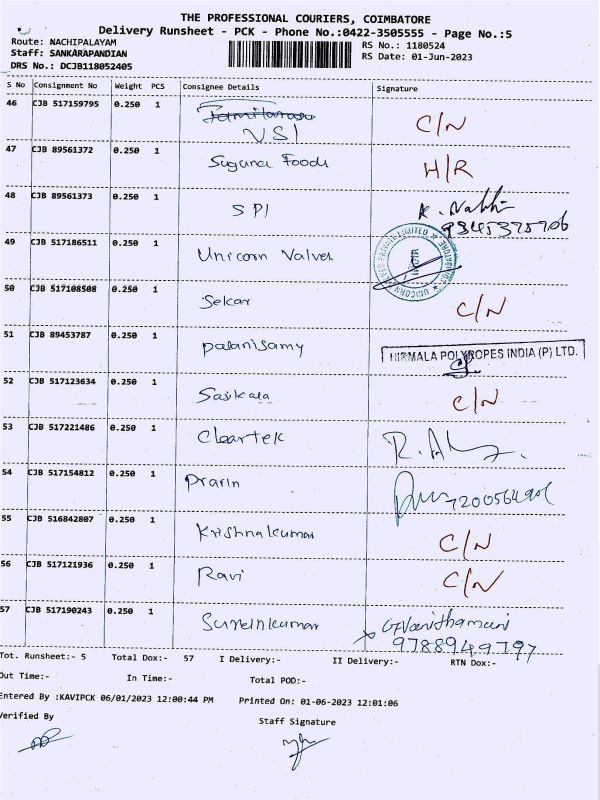 THE PROFESSIONAL COURIERS, COIMBATORE
Delivery Runsheet - PCK - Phone No.:0422-3505555 - Page No.:5
Route: NACHIPALAYAM
RS No.: 1180524
Staff: SANKARAPANDIAN
RS Date: 01-Jun-2023
DRS No.: DCJB118052405
S No Consignment No Weight PCS Consignee Details Signature
46 CJB 517159795 0.250 1 VSI C/N
47 CJB 89561372 0.250 1 Suguna Foods H/R
48 CJB 89561373 0.250 1 SPI K.
49 CJB 517186511 0.250 1 Unicorn Valves
50 CJB 517108508 0.250 1 Sekar C/N
51 CJB 89453787 0.250 1 Palanisamy NIRMALA POLYROPES INDIA (P) LTD.
52 CJB 517123634 0.250 1 Sasikala C/N
53 CJB 517221486 0.250 1 Cleartek
54 CJB 517154812 0.250 1 Pravin
55 CJB 516842807 0.250 1 Krishnakumar C/N
56 CJB 517121936 0.250 1 Ravi C/N
57 CJB 517190243 0.250 1 Sureshkumar
9788949797
Tot. Runsheet:- 5 Total Dox:- 57 I Delivery:- II Delivery:- RTN Dox:-
Out Time:- In Time:- Total POD:-
Entered By :KAVIPCK 06/01/2023 12:00:44 PM Printed On: 01-06-2023 12:01:06
Verified By Staff Signature